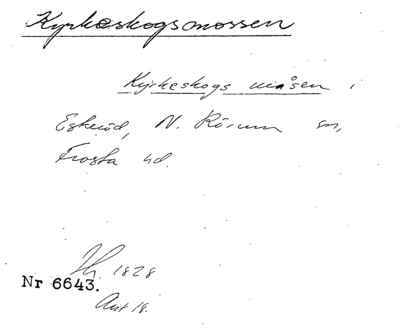 Kyrkeskogsmossen
Kyrkeskogs måsen i
Eskeröd, N. Rörum sn,
Frosta hd.
1828
Nr 6643.
Akt 18.